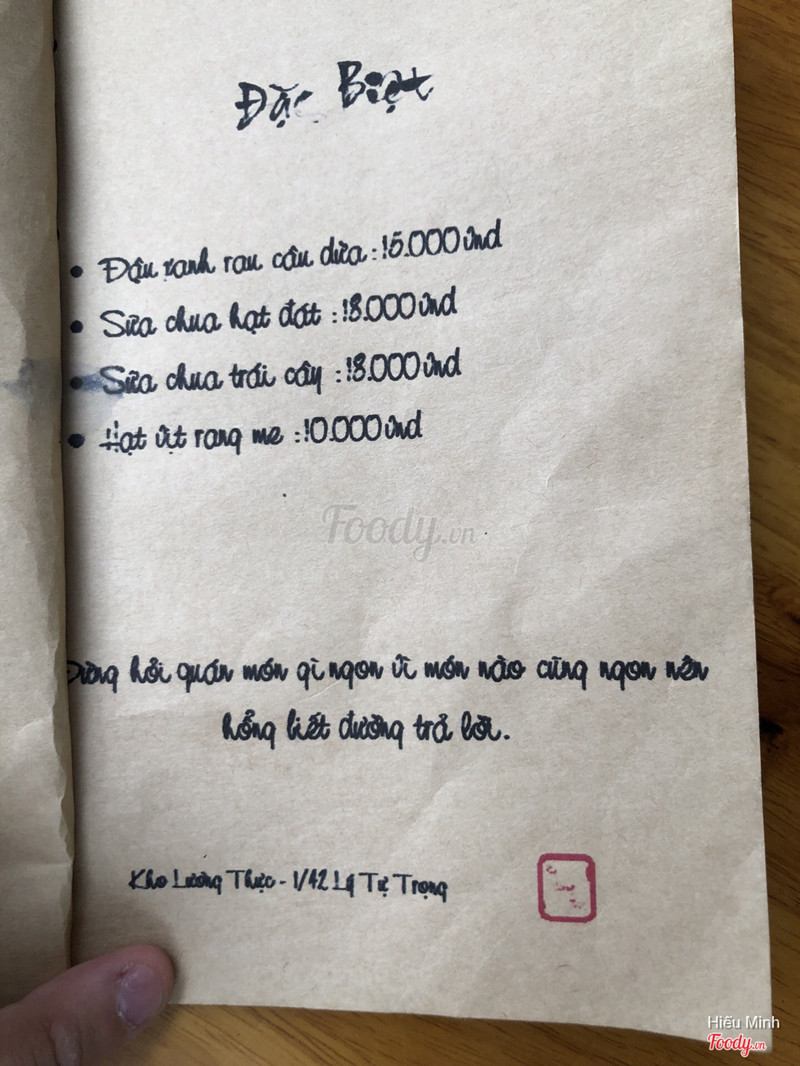 Đặc Biệt
• Đậu xanh rau câu dừa : 15.000 vnd
• Sữa chua hạt đát : 18.000 vnd
• Sữa chua trái cây : 18.000 vnd
• Hạt vịt rang me : 10.000 vnd
Foody.vn
Đừng hỏi quán món gì ngon vì món nào cũng ngon nên
hổng biết đường trả lời.
Kho Lương Thực - 1/42 Lý Tự Trọng
Hiếu Minh
Foody.vn